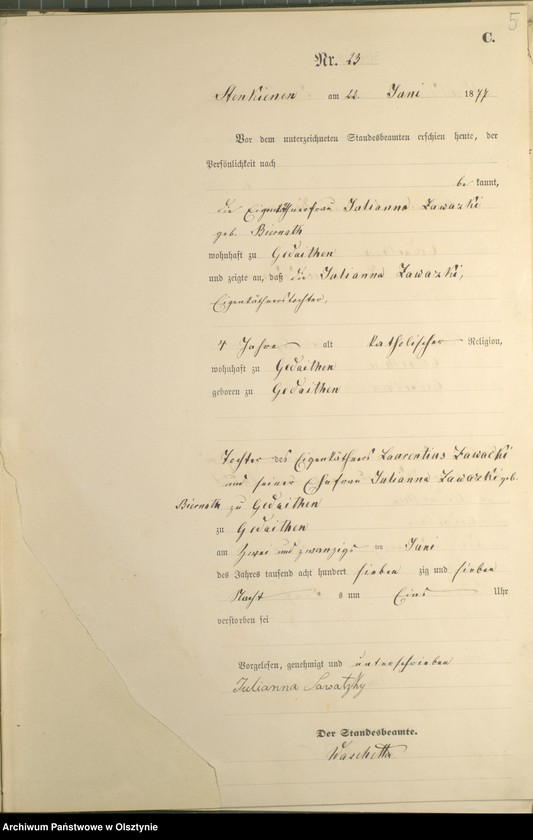 5
C.
Nr. 23
Stenkienen am 22. Juni 1877
Vor dem unterzeichneten Standesbeamten erschien heute, der
Persönlichkeit nach
be kannt,
die Eigenkäthnerfrau Julianna Zawazki
geb. Biernath
wohnhaft zu Gedaithen
und zeigte an, daß die Julianna Zawazki,
Eigenkäthnerstochter,
4 Jahre alt katholischer Religion,
wohnhaft zu Gedaithen
geboren zu Gedaithen
Tochter des Eigenkäthners Laurentius Zawacki
und seiner Ehefrau Julianna Zawazki geb.
Biernath zu Gedaithen
zu Gedaithen
am zwei und zwanzigs ten Juni
des Jahres tausend acht hundert sieben zig und sieben
Nacht s um Eins Uhr
verstorben sei
Vorgelesen, genehmigt und unterschrieben
Julianna Sawatzky
Der Standesbeamte.
Archiwum Państwowe w Olsztynie